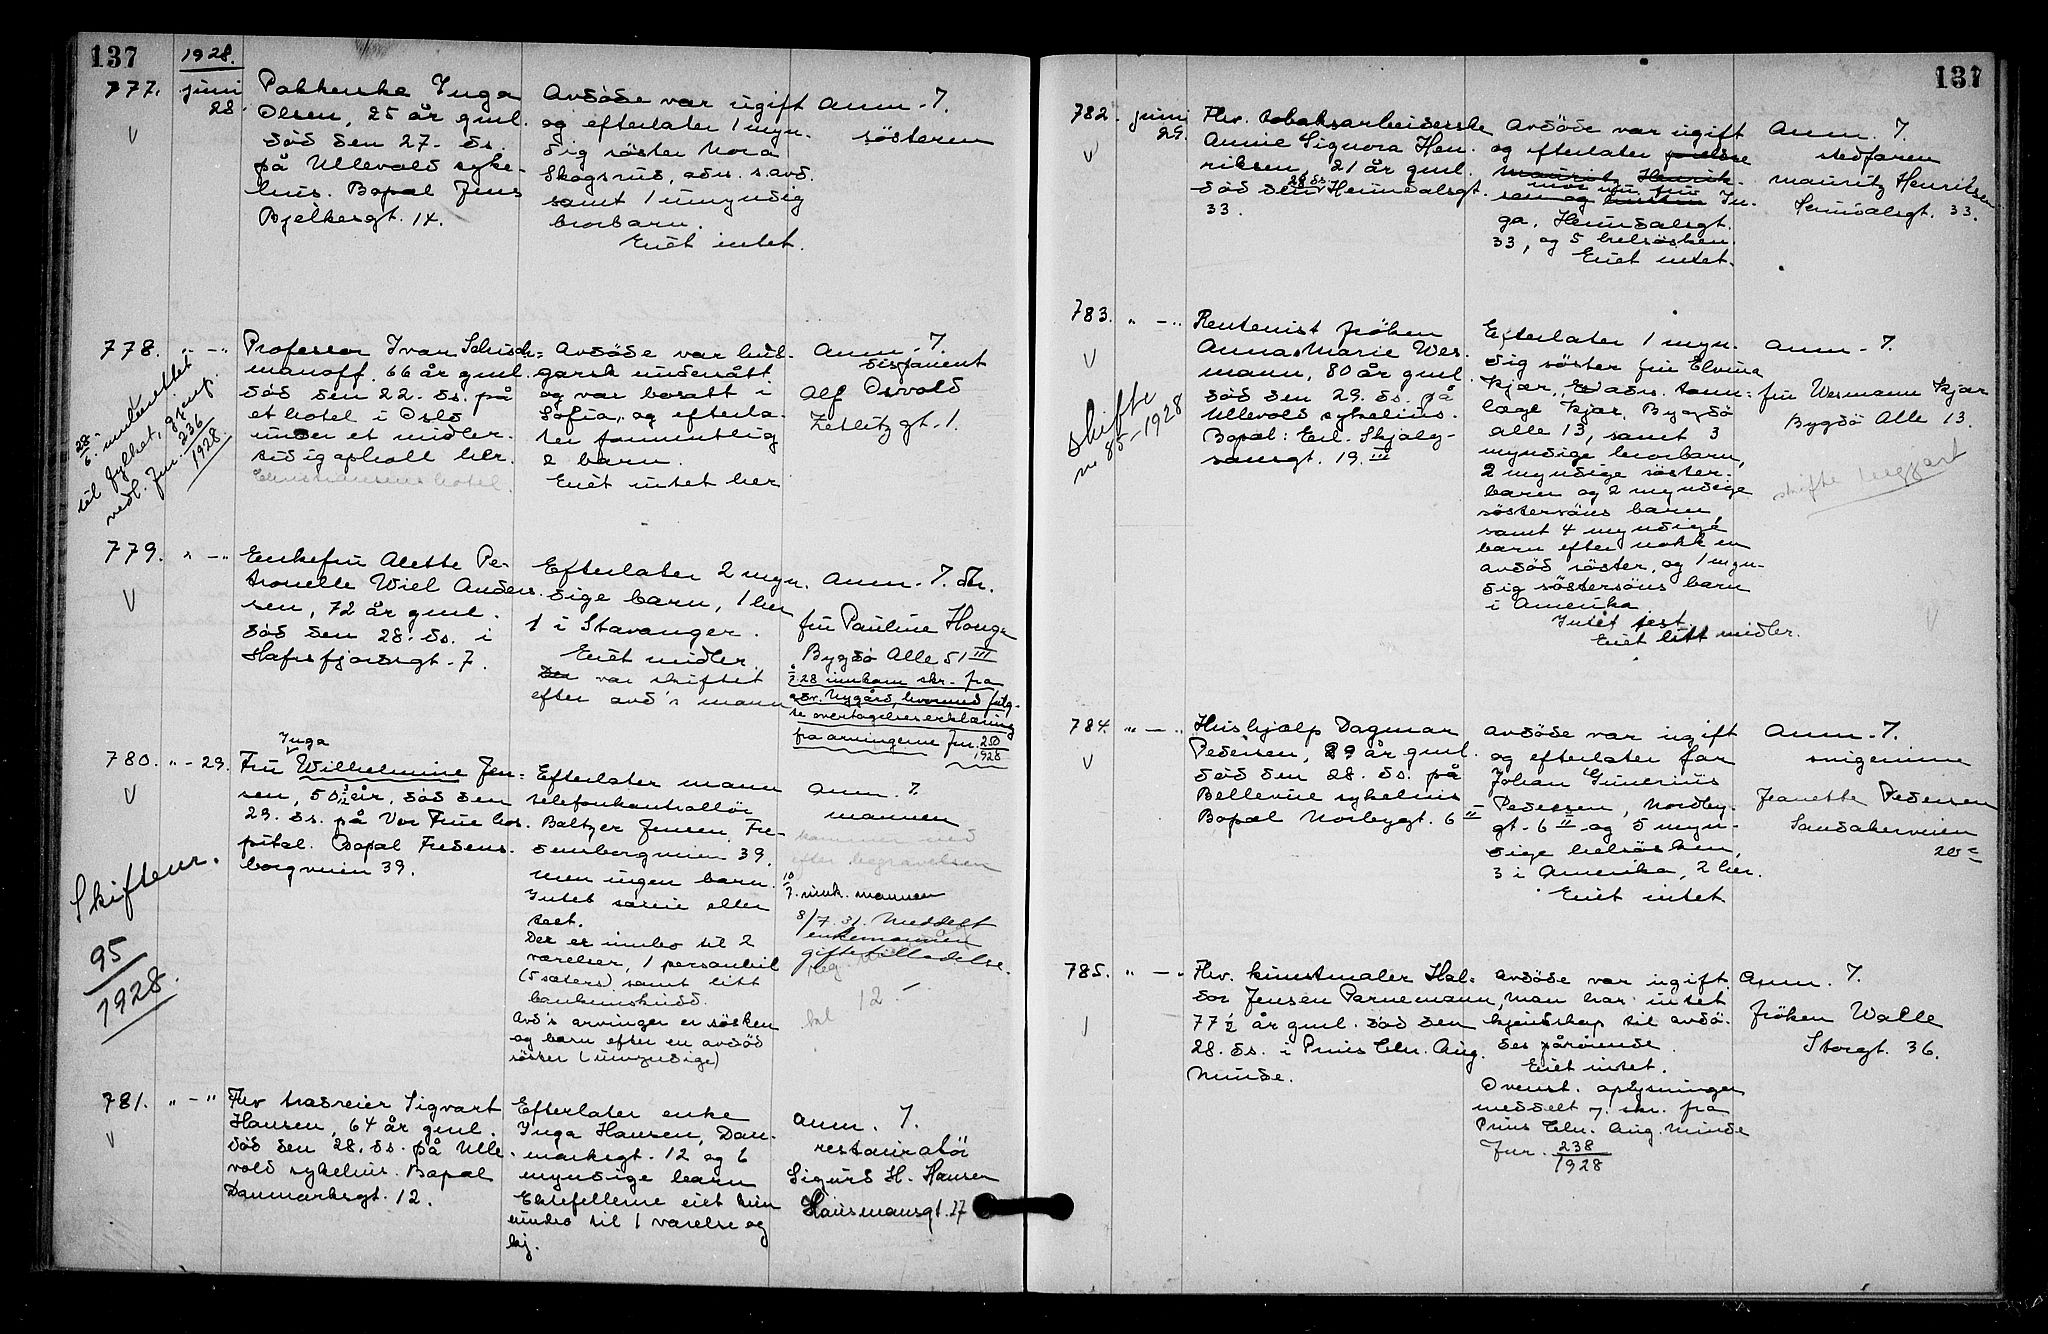 137
1928.
777. juni 28.
Pakkerske Inga
Olsen, 25 år gml.
död den 27. ds.
på Ullevold syke-
hus. Bopæl Jens
Bjelkesgt. 14.
Avdöde var ugift
og efterlater 1 myn-
dig söster Nora
Skogsrud, adr. s. avd.
samt 1 umyndig
brorbarn.
Eiet intet.
Anm. 7.
søsteren
778. " - "
Professor Ivan Schisch=
manoff. 66 år gml.
död den 22. ds. på
et hotel i Oslo
under et midler-
tidig ophold her.
Christiansens hotel.
28/6. underrettet
til fylket, gjenp.
vedl. Jnr. 236
1928.
Avdöde var bul-
garsk undersått
og var bosatt i
Sofia, og efterla-
ter formentlig
2 barn.
Eiet intet her
Anm. 7.
disponent
Alf Osvold
Zetlitzgt. 1.
779. " - "
Enkefru Alette Pe-
tronelle Wiel Anders
sen, 72 år gml.
död den 28. ds. i
Hafrsfjordsgt. 7.
Efterlater 2 myn-
dige barn, 1 her
1 i Stavanger.
Eiet midler.
Der var skiftet
efter avd's mann
Anm. 7. dtr.
fru Pauline Houge
Bygdö Alle 51 III
28 innkom skr. fra
adv. Nygård, hvormed fulg-
te overtagelseserklæring
fra arvingerne Jnr. 20
1928
780. " - 29.
Inga
Fru Wilhelmine Jen=
sen, 50 3/12 år, död den
29. ds. på Vor Frue hos-
pital. Bopæl Fredens-
borgveien 39.
Skiftenr.
95
1928.
Efterlater mann
telefonkontrollör
Baltzer Jensen, Fre-
densborgveien 39,
men ingen barn.
Intet særeie eller
test.
Der er innbo til 2
værelser, 1 personbil
(5 seters) samt litt
bankinnskudd.
Avd's arvinger er sösken
og barn efter en avdöd
söster (umyndige)
Anm. 7.
mannen
kommer ned
efter begravelsen
10/7. innk. mannen
8/7 31. Meddelt
enkemannen
giftetilladelse.
12.-
781. " - "
Fhv. trædreier Sigvart
Hansen, 64 år gml.
död den 28. ds. på Ulle-
vold sykehus. Bopæl
Danmarksgt. 12.
Efterlater enke
Inga Hansen, Dan-
marksgt. 12 og 6
myndige barn
Ektefellerne eiet kun
innbo til 1 værelse og
kj.
Anm. 7.
restauratör
Sigurd H. Hansen
Hausmansgt. 27
137
782. juni 29.
Fhv. tobaksarbeiderske
Annie Signora Hen-
riksen, 21 år gml.
död den 28 ds. Heimdalsgt.
33.
Avdöde var ugift
og efterlater foreldre
Mauritz Henrik-
mor nu fru
sen og hustru In-
ga, Heimdalsgt.
33, og 5 helsösken.
Eiet intet.
Anm. 7.
stedfaren
Mauritz Henriksen
Heimdalsgt. 33.
783. " - "
Rentenist fröken
Anna Marie Wes-
mann, 80 år gml.
död den 29. ds. på
Ullevold sykehus.
Bopæl: Erl. Skjalg-
sønsgt. 19. III
skifte
nr 85-1928
Efterlater 1 myn-
dig söster fru Elvina
Kjær, adr. tann=
læge Kjær, Bygdö
alle 13, samt 3
myndige brorbarn,
2 myndige söster-
barn og 2 myndige
söstersöns barn
samt 4 myndige
barn efter nokk en
avdöd söster, og 1 myn-
dig söstersöns barn
i Amerika
Intet test.
Eiet litt midler.
Anm. 7.
fru Wesmann Kjær
Bygdö Alle 13.
skifte begjært
784. " - "
Hushjælp Dagmar
Pedersen, 29 år gml.
död den 28. ds. på
Bellevue sykehus
Bopæl Norbygt. 6 II
Avdöde var ugift
og efterlater far
Johan Gunerius
Pedersen, Nordby-
gt. 6 II og 5 myn-
dige helsösken,
3 i Amerika, 2 her.
Eiet intet
Anm. 7.
svigerinne
Jeanette Pedersen
Sandakerveien
20 c
785. " - "
Fhv. kunstmaler Hal=
dor Jensen Parnemann,
77 1/2 år gml. död den
28. ds. i Prins Chr. Aug.
Minde.
Avdöde var ugift
man har intet
kjendskap til avdö-
des pårörende.
Eiet intet.
Ovenst. oplysninger
meddelt 7. skr. fra
Prins Chr. Aug. Minde
Jnr. 238
1928
Anm. 7.
fröken Walle
Storgt. 36.